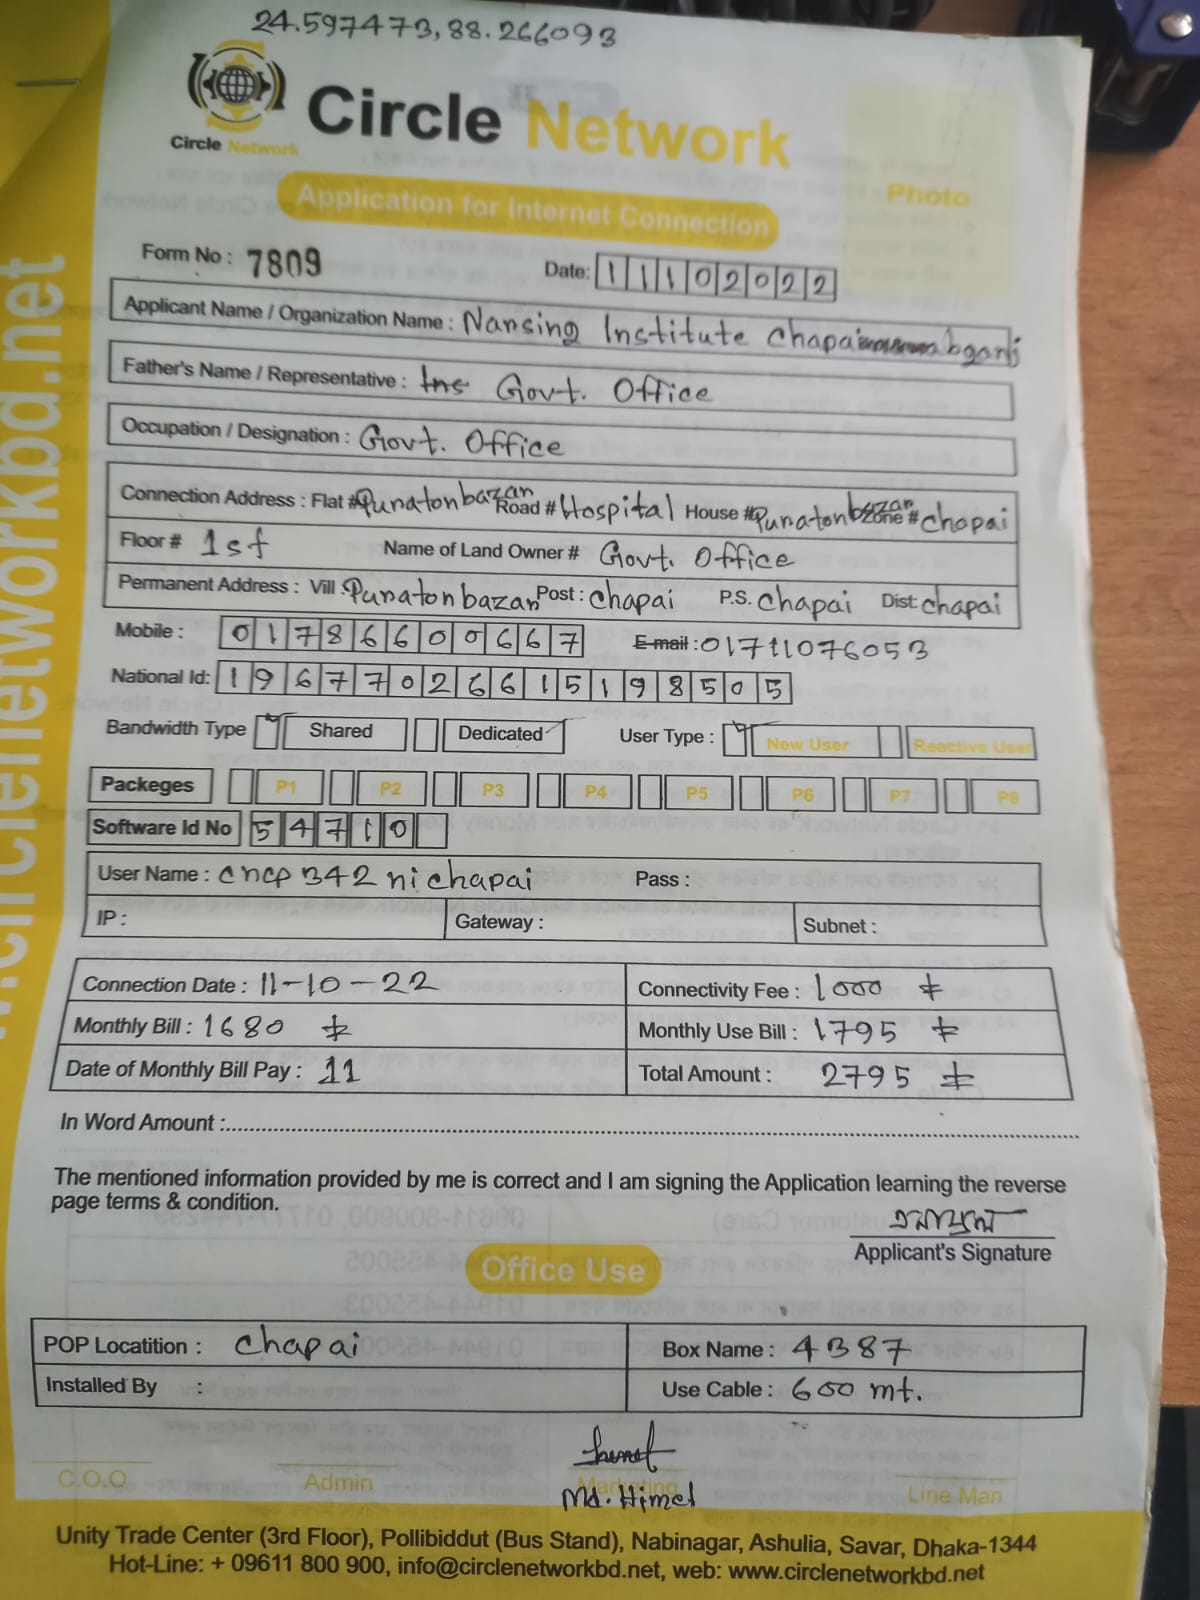 24.597473, 88.266093
Circle Network
Circle Network
Application for Internet Connection
Photo
Form No : 7809
Date: 11102022
Applicant Name / Organization Name : Narsing Institute Chapai
Father's Name / Representative : Govt. Office
Occupation / Designation : Govt. Office
Connection Address : Flat # Puratonbazar Road # Hospital House # Puratonbazar Zone # chapai
Floor # 1st Name of Land Owner # Govt. Office
Permanent Address : Vill : Puratonbazar Post : chapai P.S. chapai Dist: chapai
Mobile : 01786600667 E-mail : 01711076053
National Id: 19677026615198505
Bandwidth Type Shared Dedicated User Type : New User Reactive User
Packeges P1 P2 P3 P4 P5 P6 P7 P8
Software Id No 54710
User Name : cncp342nichapai Pass :
IP : Gateway : Subnet :
Connection Date : 11-10-22 Connectivity Fee : 1000
Monthly Bill : 1680 Monthly Use Bill : 1795
Date of Monthly Bill Pay : 11 Total Amount : 2795
In Word Amount :
The mentioned information provided by me is correct and I am signing the Application learning the reverse
page terms & condition.
Applicant's Signature
Office Use
POP Locatition : chapai Box Name : 4B87
Installed By : Use Cable : 600 mt.
C.O.O Admin Marketing Line Man
Md. Himel
Unity Trade Center (3rd Floor), Pollibiddut (Bus Stand), Nabinagar, Ashulia, Savar, Dhaka-1344
Hot-Line: + 09611 800 900, info@circlenetworkbd.net, web: www.circlenetworkbd.net
w.circlenetworkbd.net